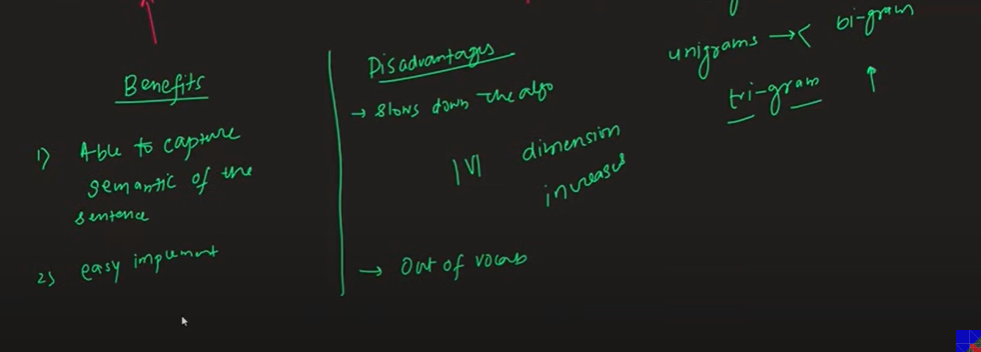 Benefits
1) Able to capture
semantic of the
sentence
2) easy implement
Disadvantages
→ Slows down the algo
|V| dimension
increases
→ Out of vocab
unigrams → < bi-gram
tri-gram ↑